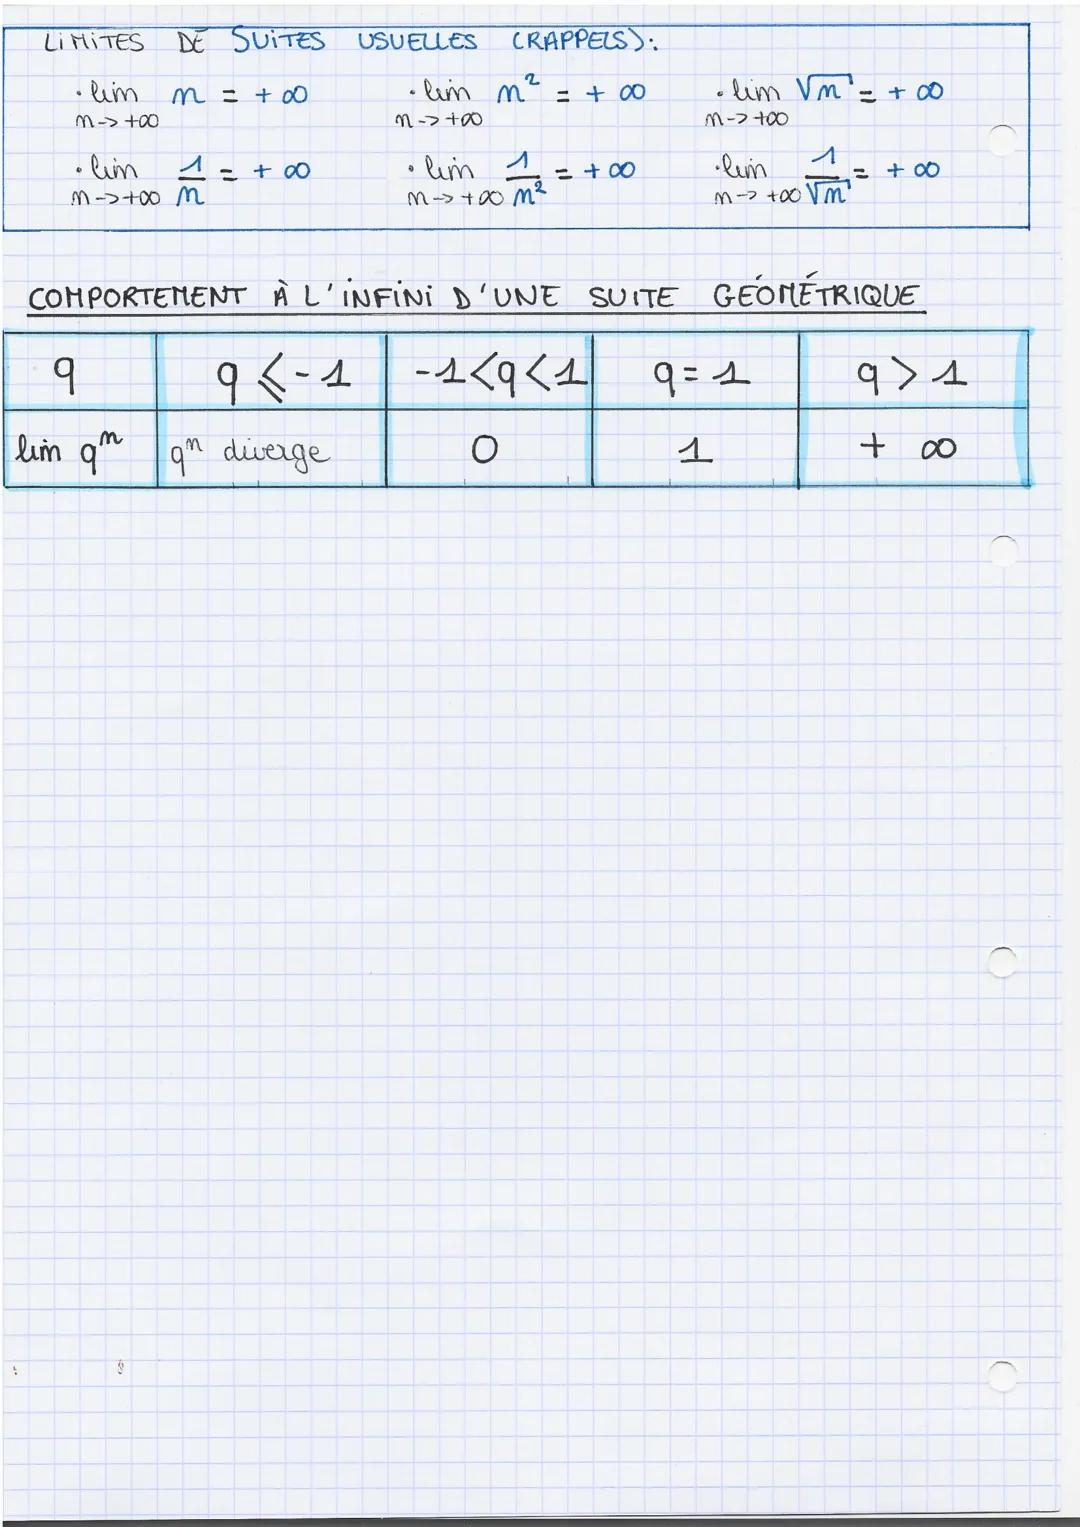 LIMITES DE SUITES USUELLES (RAPPELS):
· lim n = +∞ · lim n² = +∞ · lim √n = +∞
n->+∞ n->+∞ n->+∞
· lim 1/n = +∞ · lim 1/n² = +∞ · lim 1/√n = +∞
n->+∞ n->+∞ n->+∞
COMPORTEMENT À L'INFINI D'UNE SUITE GÉOMÉTRIQUE
q q ⩽ -1 -1<q<1 q = 1 q > 1
lim qⁿ qⁿ diverge 0 1 + ∞